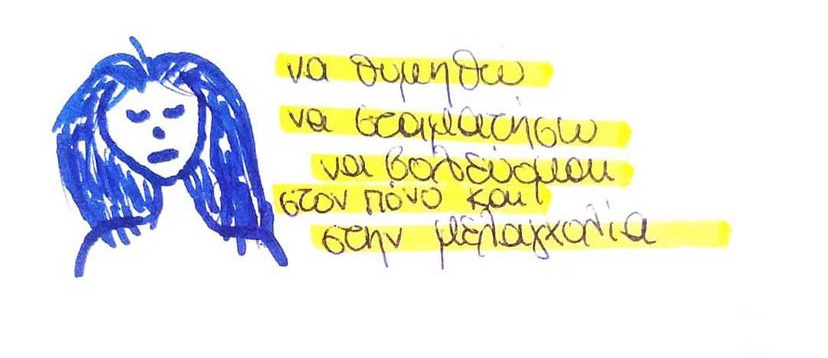 να θυμηθώ
να σταματήσω
να βολεύομαι
στον πόνο και
στην μελαγχολία